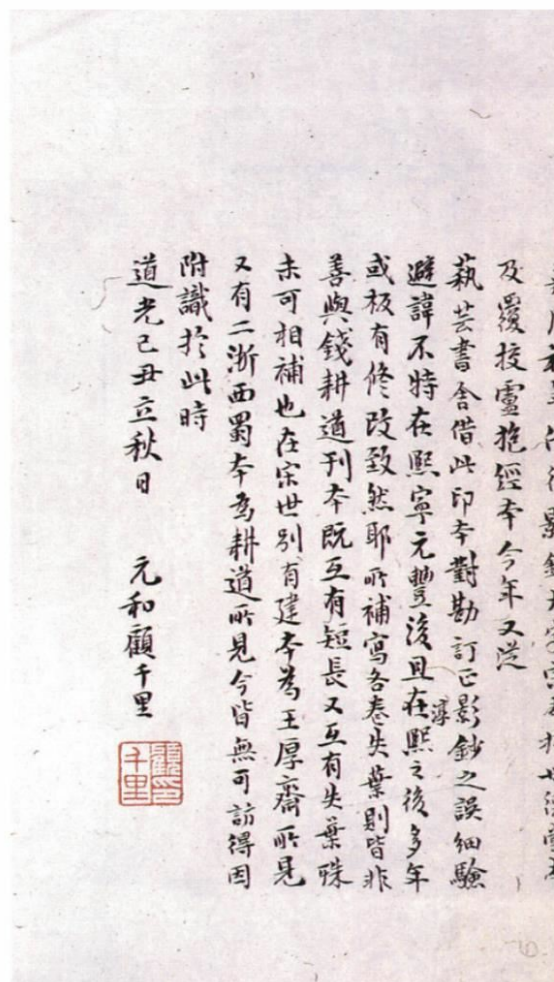 及覆挍盧抱經本今年又從
藝芸書舍借此印本對勘訂正影鈔之誤細驗
避諱不特在熙寧元豐後且在淳熙之後多年
或板有修改致然耶所補寫各卷失葉則皆非
善與錢耕道刊本既互有短長又互有失葉殊
未可相補也在宋世别有建本為王厚齋所見
又有二浙西蜀本為耕道所見今皆無可訪得因
附識於此時
道光己丑立秋日 元和顧千里
顧印千里